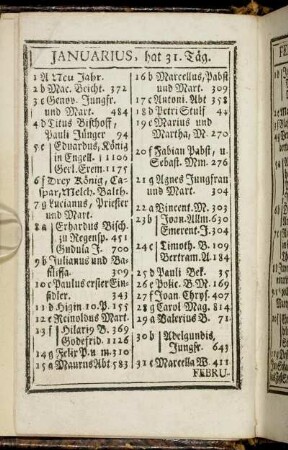 JANUARIUS, hat 31. Täg.
1 A Neu Jahr.
2 b Mac. Beicht. 372
3 c Genov. Jungfr.
und Mart. 484
4 d Titus Bischoff,
Pauli Jünger 94
5 e Eduardus, König
in Engell. 1100
Gerl. Erem. 1175
6 f Drey König, Ca-
spar, Melch. Balth.
7 g Lucianus, Priester
und Mart.
8 a Erhardus Bisch.
zu Regensp. 451
Gudula J. 700
9 b Julianus und Ba-
silissa. 309
10 c Paulus erster Ein-
sidler. 343
11 d Higin 10. P. 155
12 e Reinoldus Mart.
13 f Hilariy B. 369
Godefrid. 1126
14 g Felix P. u m. 310
15 a Maurus Abt 583
16 b Marcellus, Pabst
und Mart. 309
17 c Antoni. Abt 358
18 d Petri Stuil 44
19 e Marius und
Martha, M. 270
20 f Fabian Pabst, u.
Sebast. Mm. 276
21 g Agnes Jungfrau
und Mart. 304
22 a Vincent. M. 303
23 b Joan. Allm. 630
Emerent. J. 304
24 c Timoth. B. 109
Bertram. A. 184
25 d Pauli Bek. 35
26 e Polic. B. M. 169
27 f Joan Chrys. 407
28 g Carol Mag. 814
29 a Valerius B. 71
30 b Adelgundis,
Jungfr. 643
31 c Marcella W. 411
FEBRU-